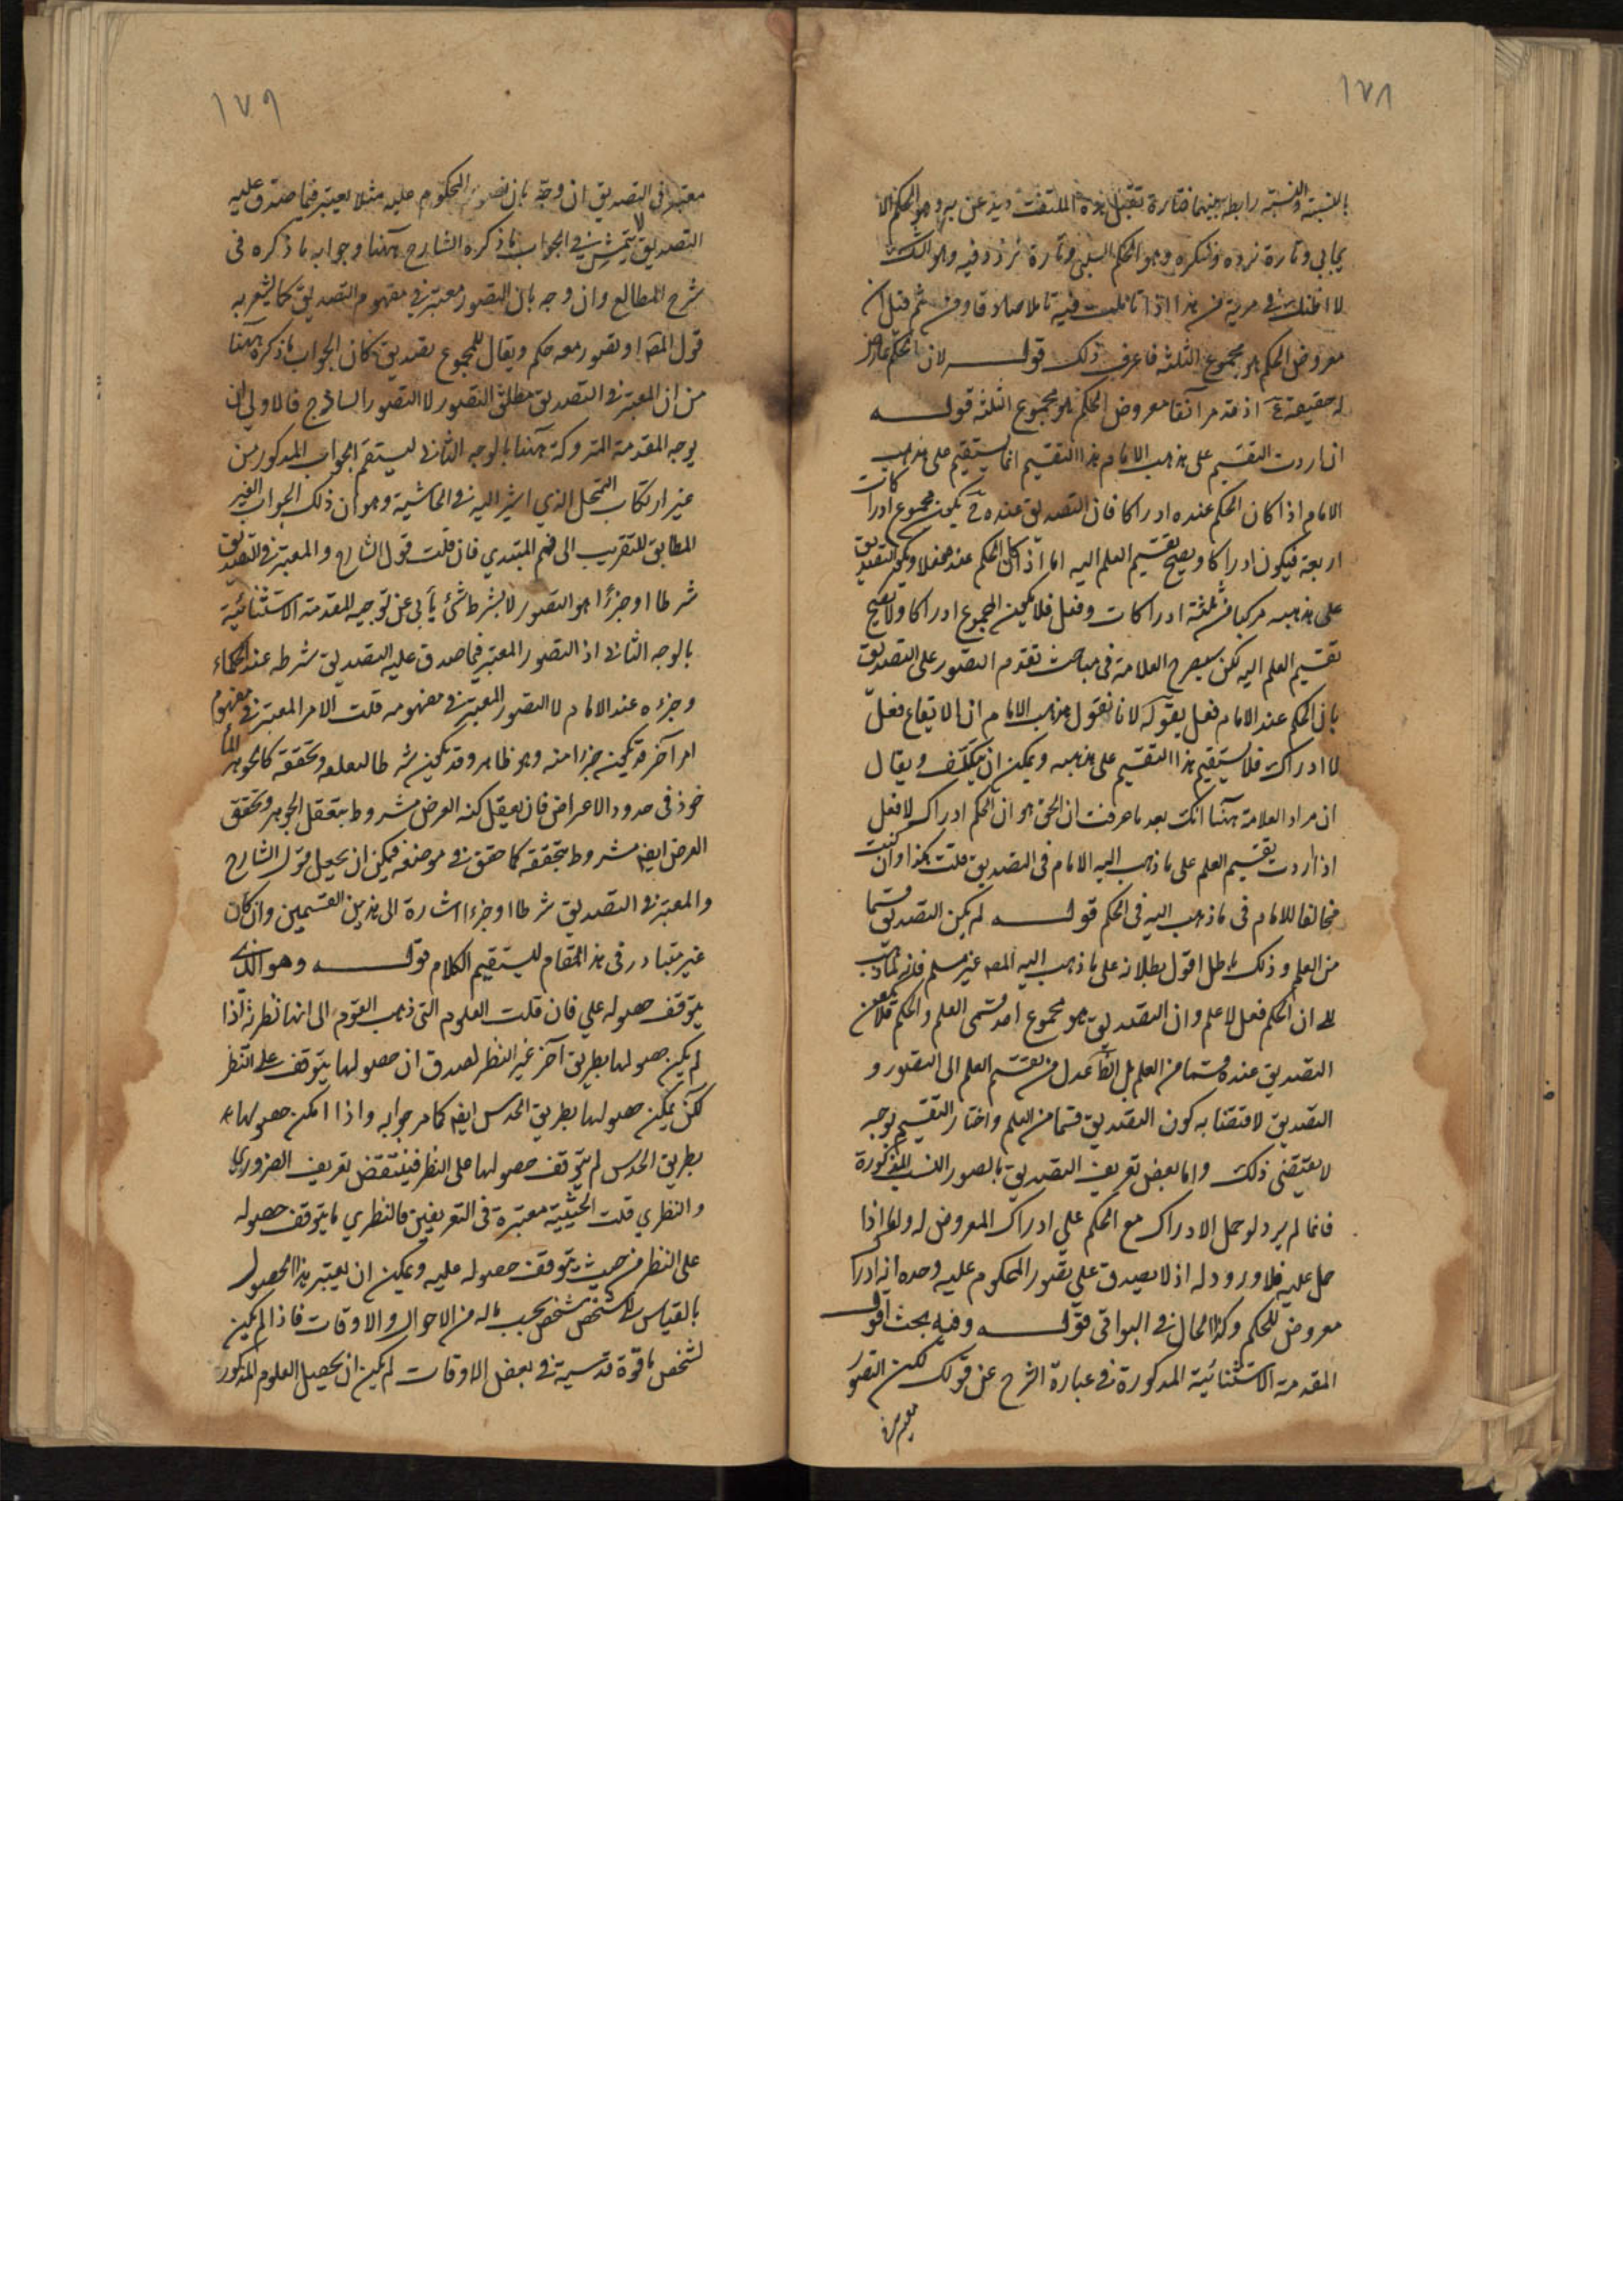 ١٧٨
بالنسبة والنسبة رابطة بينهما فتارة تقبل هذه الملتفت ويذعن بها وهو الحكم الا
يجابي وتارة نرده وننكره وهو الحكم السلبي وتارة نردد فيه وهو الشك
لا اظنك في مرية من هذا اذا تأملت فيه تأملا صادقا ومن ثم قيل ان
معروض الحكم هو مجموع الثلثة فاعرف ذلك قوله لان الحكم عارض
له حقيقة اذ قد مر آنفا معروض الحكم هو مجموع الثلثة قوله
ان اردت التقسيم على مذهب الامام هذا التقسيم انما يستقيم على مذهب
الامام اذا كان الحكم عنده ادراكا فان التصديق عنده ح يكون مجموع ادراكات
اربعة فيكون ادراكا ويصح تقسيم العلم اليه اما اذا كان الحكم عنده فعلا ويكون التصديق
على مذهبه مركبا من ثلثة ادراكات وفعل فلا يكون المجموع ادراكا ولا يصح
تقسيم العلم اليه لكن سيصرح العلامة في مباحث تقدم التصور على التصديق
بان الحكم عند الامام فعل بقوله لانا نقول مذهب الامام ان الايقاع فعل
لا ادراك فلا يستقيم هذا التقسيم على مذهبه ويمكن ان يتكلف ويقال
ان مراد العلامة ههنا انك بعد ما عرفت ان الحق هو ان الحكم ادراك لا فعل
اذا اردت تقسيم العلم على ما ذهب اليه الامام في التصديق قلت هكذا وان كنت
مخالفا للامام في ما ذهب اليه في الحكم قوله لم يكن التصديق قسما
من العلم وذلك باطل اقول بطلانه على ما ذهب اليه المص غير مسلم فانه لما ذهب
الى ان الحكم فعل لا علم وان التصديق هو مجموع احد قسمي العلم والحكم فلا يكون
التصديق عنده قسما من العلم بل انما عدل من تقسيم العلم الى التصور و
التصديق لاقتضائه كون التصديق قسما من العلم واختار التقسيم بوجه
لا يقتضي ذلك واما بعض تعريف التصديق بالصور الست المذكورة
فانما لم يرد لو حمل الادراك مع الحكم على ادراك المعروض له واما اذا
حمل عليه فلا ورود له اذ لا يصدق على تصور المحكوم عليه وحده انه ادراك
معروض للحكم وكذا الحال في البواقي قوله وفيه بحث اقول
المقدمة الاستثنائية المذكورة في عبارة الشرح عن قولك لكن التصور
معتبر في
١٧٩
معتبر في التصديق ان وجه بان تصور المحكوم عليه مثلا يعتبر فيما صدق عليه
التصديق لا يتمشى في الجواب ما ذكره الشارح ههنا وجوابه ما ذكره في
شرح المطالع وان وجه بان التصور معتبر في مفهوم التصديق كما يشعر به
قول المص او تصور معه حكم ويقال للمجموع تصديق كان الجواب ما ذكره ههنا
من ان المعتبر في التصديق مطلق التصور لا التصور الساذج فالاولى ان
يوجه المقدمة المتروكة ههنا بالوجه الثاني ليستقيم الجواب المذكور من
غير ارتكاب التمحل الذي اشير اليه في الحاشية وهو ان ذلك الجواب الغير
المطابق للتقريب الى فهم المبتدي فان قلت قول الشارح والمعتبر في التصديق
شرطا او جزءا هو التصور لا بشرط شئ يأبى عن توجيه المقدمة الاستثنائية
بالوجه الثاني اذ التصور المعتبر فيما صدق عليه التصديق شرطه عند الحكماء
وجزءه عند الامام لا التصور المعتبر في مفهومه قلت الامر المعتبر في مفهوم
امر آخر قد يكون جزءا منه وهو ظاهر وقد يكون شرطا لتعلقه وتحققه كالجوهر المأ
خوذ في حدود الاعراض فان تعقل كنه العرض مشروط بتعقل الجوهر وتحقق
العرض ايضا مشروط بتحققه كما حقق في موضعه فيمكن ان يجعل قول الشارح
والمعتبر في التصديق شرطا او جزءا اشارة الى هذين القسمين وان كان
غير متبادر في هذا المقام ليستقيم الكلام قوله وهو الذي
يتوقف حصوله على فان قلت العلوم التي ذهب القوم الى انها نظرية اذا
لم يكن حصولها بطريق آخر غير النظر لصدق ان حصولها يتوقف على النظر
لكن يمكن حصولها بطريق الحدس ايضا كما مر جوابه واذا امكن حصولها
بطريق الحدس لم يتوقف حصولها على النظر فينتقض تعريف الضروري
والنظري قلت الحيثية معتبرة في التعريفين فالنظري ما يتوقف حصوله
على النظر من حيث يتوقف حصوله عليه ويمكن ان يعتبر هذا الحصول
بالقياس الى شخص شخص بحسب ماله من الاحوال والاوقات فاذا لم يكن
لشخص ما قوة قدسية في بعض الاوقات لم يكن ان يحصل العلوم المذكور